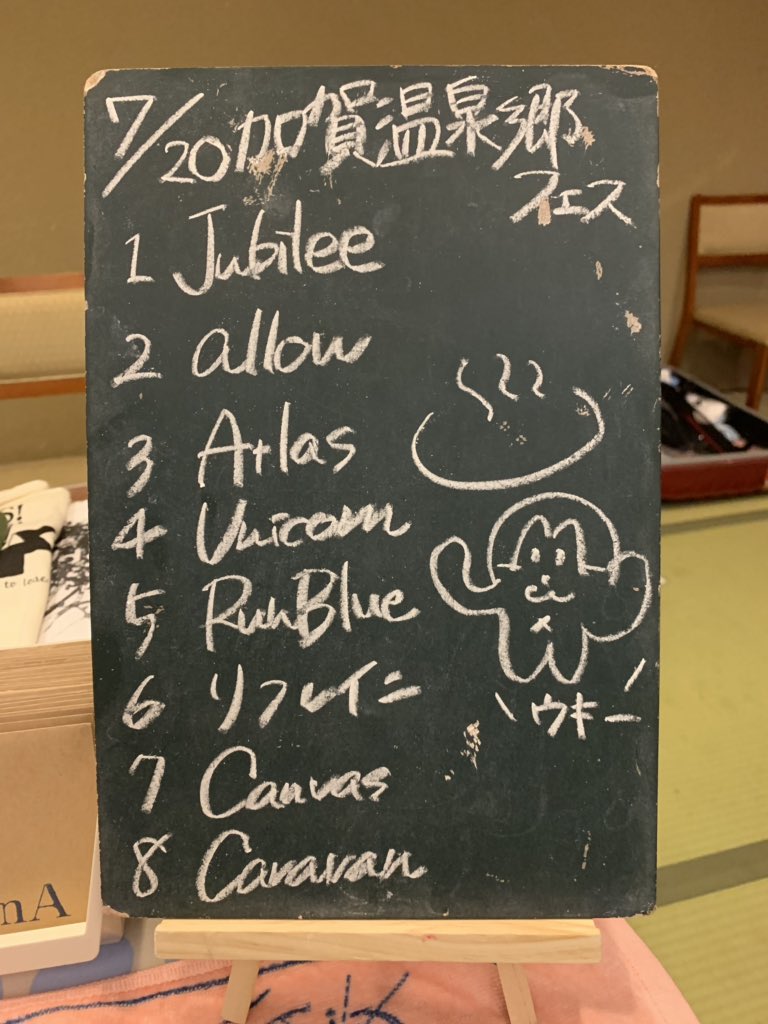 7/20加賀温泉郷
フェス
1 Jubilee
2 allow
3 Atlas
4 Unicorn
5 RunBlue
6 リフレイン
7 Canvas
8 Caravan
ウキー
to love
nA